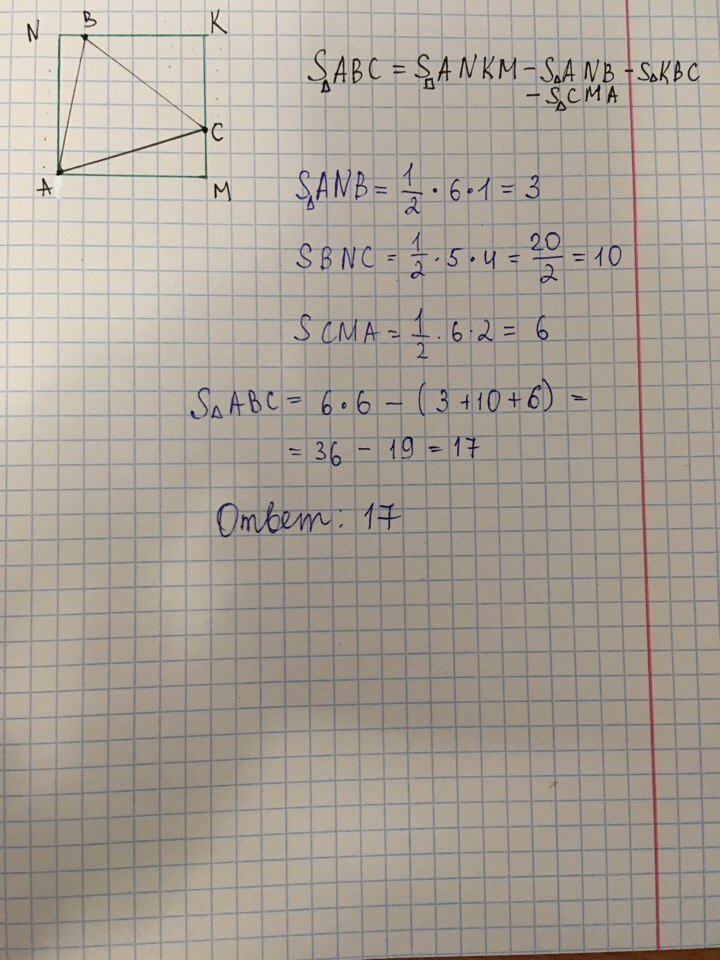 N B K
C
A M
S△ABC = S□ANKM - S△ANB - S△KBC
- S△CMA
S△ANB = 1/2 · 6 · 1 = 3
SBNC = 1/2 · 5 · 4 = 20/2 = 10
SCMA = 1/2 · 6 · 2 = 6
S△ABC = 6 · 6 - (3 + 10 + 6) =
= 36 - 19 = 17
Ответ: 17